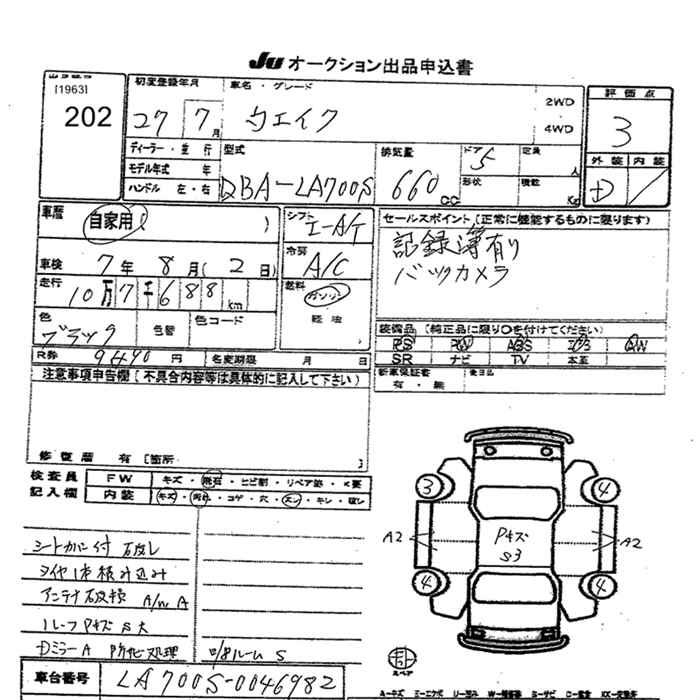 JU オークション出品申込書
[1963]
202
初度登録年月
27 7月
車名・グレード
ウエイク
2WD
4WD
評価点
3
外装 内装
D /
ディーラー・並行
モデル年式 年
ハンドル 左・右
型式
DBA-LA700S
排気量
660 CC
ドア 5
定員 人
形状
積載 Kg
車歴
自家用( )
シフト
I-A/T
冷房
A/C
燃料
ガソリン
軽油
セールスポイント(正常に機能するものに限ります)
記録簿有り
バックカメラ
車検 7年 8月(2日)
走行 10万7千688km
色 ブラック
色替
色コード
装備品(純正品に限り○を付けてください)
PS PW ABS エアB AW
SR ナビ TV 本革
R券 9490円
名変期限 月 日
新車保証書
有・無
後日品
注意事項申告欄(不具合内容等は具体的に記入して下さい)
修復歴 有[箇所
検査員
記入欄
FW キズ・飛石・ヒビ割・リペア跡・X要
内装 キズ・汚れ・コゲ・穴・スレ・キレ・破レ
3
4
A2
Pキズ
S3
A2
4
4
シートカバー付
タイヤ1本積み込み
アンテナ破損 A/W A
ルーフPキズ S大
DミラーA 防他処理
ルーム S
車台番号 LA700S-0046982
スペア